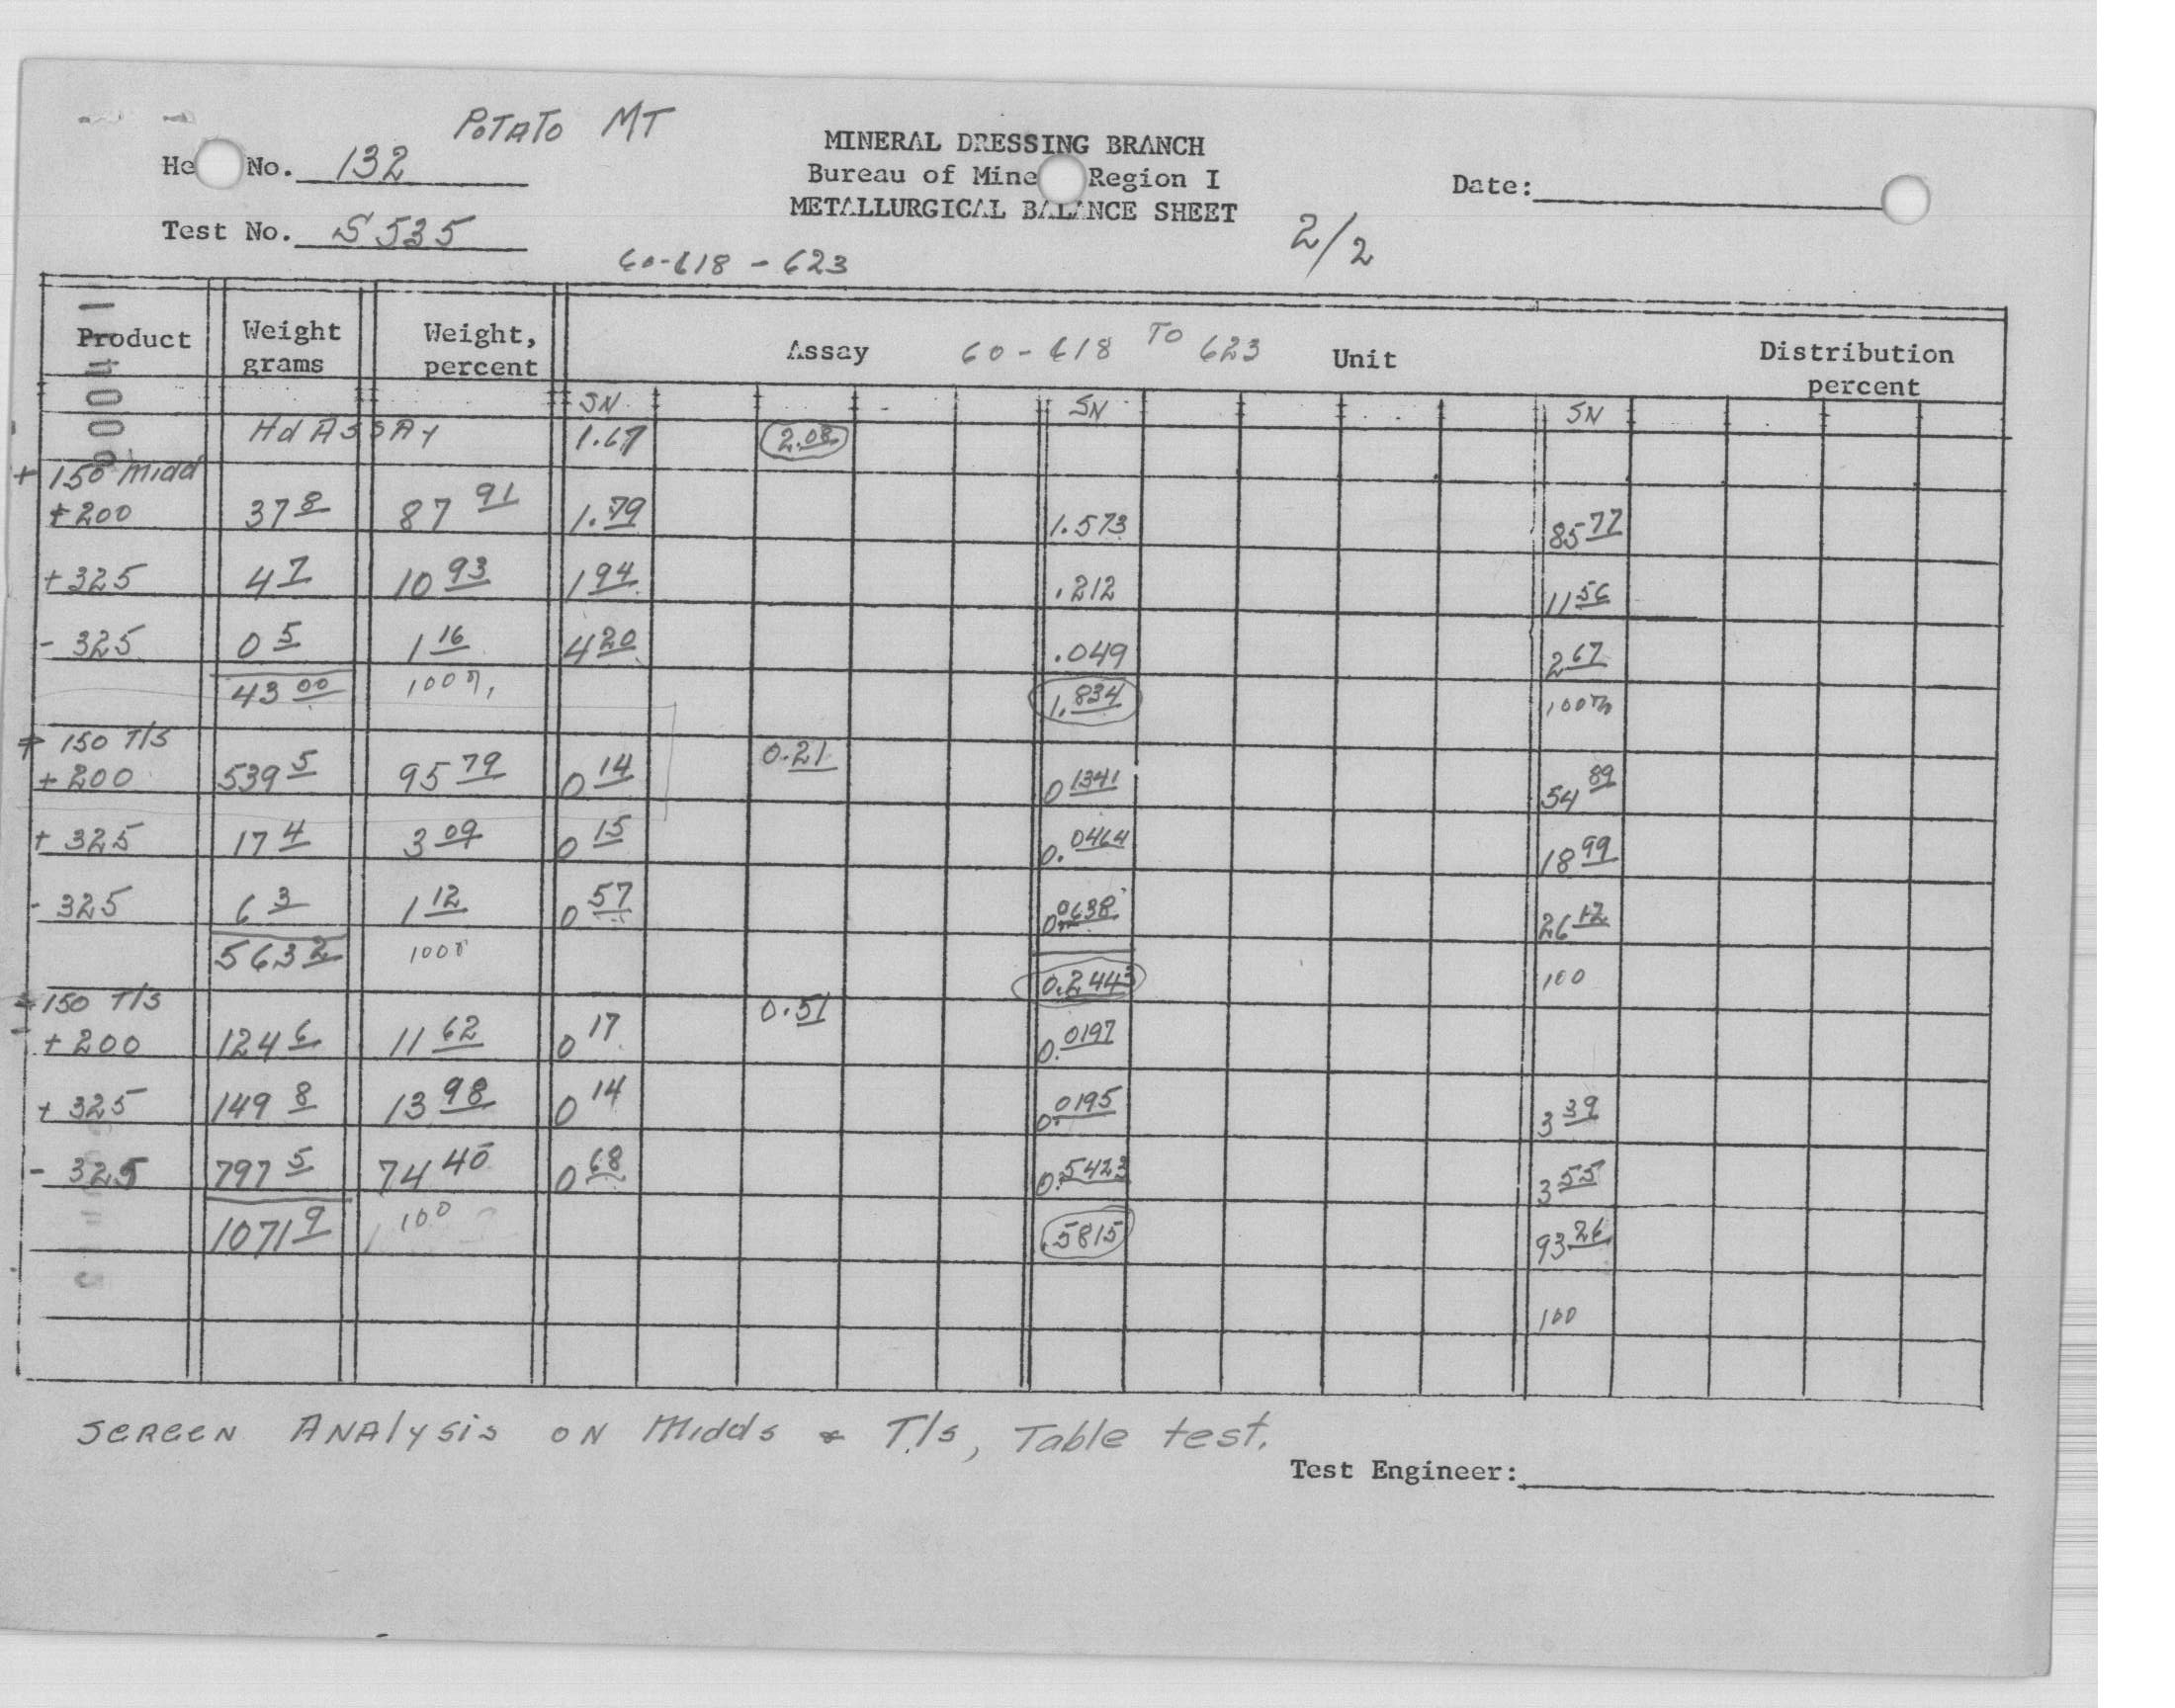 POTATO MT
MINERAL DRESSING BRANCH
He No. 132
Bureau of Mine Region I
Date:
METALLURGICAL BALANCE SHEET
Test No. S535
2/2
60-618 - 623
Product Weight grams Weight, percent Assay 60-618 TO 623 Unit Distribution percent
SN SN SN
Hd ASSAY 1.67 2.08
+ 150 Midd
+200 37 8 87 91 1.79 1.573 85 77
+325 4 7 10 93 1 94 .212 11 56
- 325 0 5 1 16 4 20 .049 2 67
43 00 100 1.834 100
150 T/S 0.21
+200 539 5 95 79 0 14 0 1341 54 89
+ 325 17 4 3 09 0 15 0.0464 18 99
- 325 6 3 1 12 0 57 0 0638 26 12
563 2 100 0.2443 100
150 T/S 0.51
+200 124 6 11 62 0 17 0.0197
+ 325 149 8 13 98 0 14 0.0195 3 39
- 325 797 5 74 40 0 68 0.5423 3 55
1071 9 100 .5815 93 26
100
SCREEN ANAlysis ON Midds & T/s, Table test.
Test Engineer: